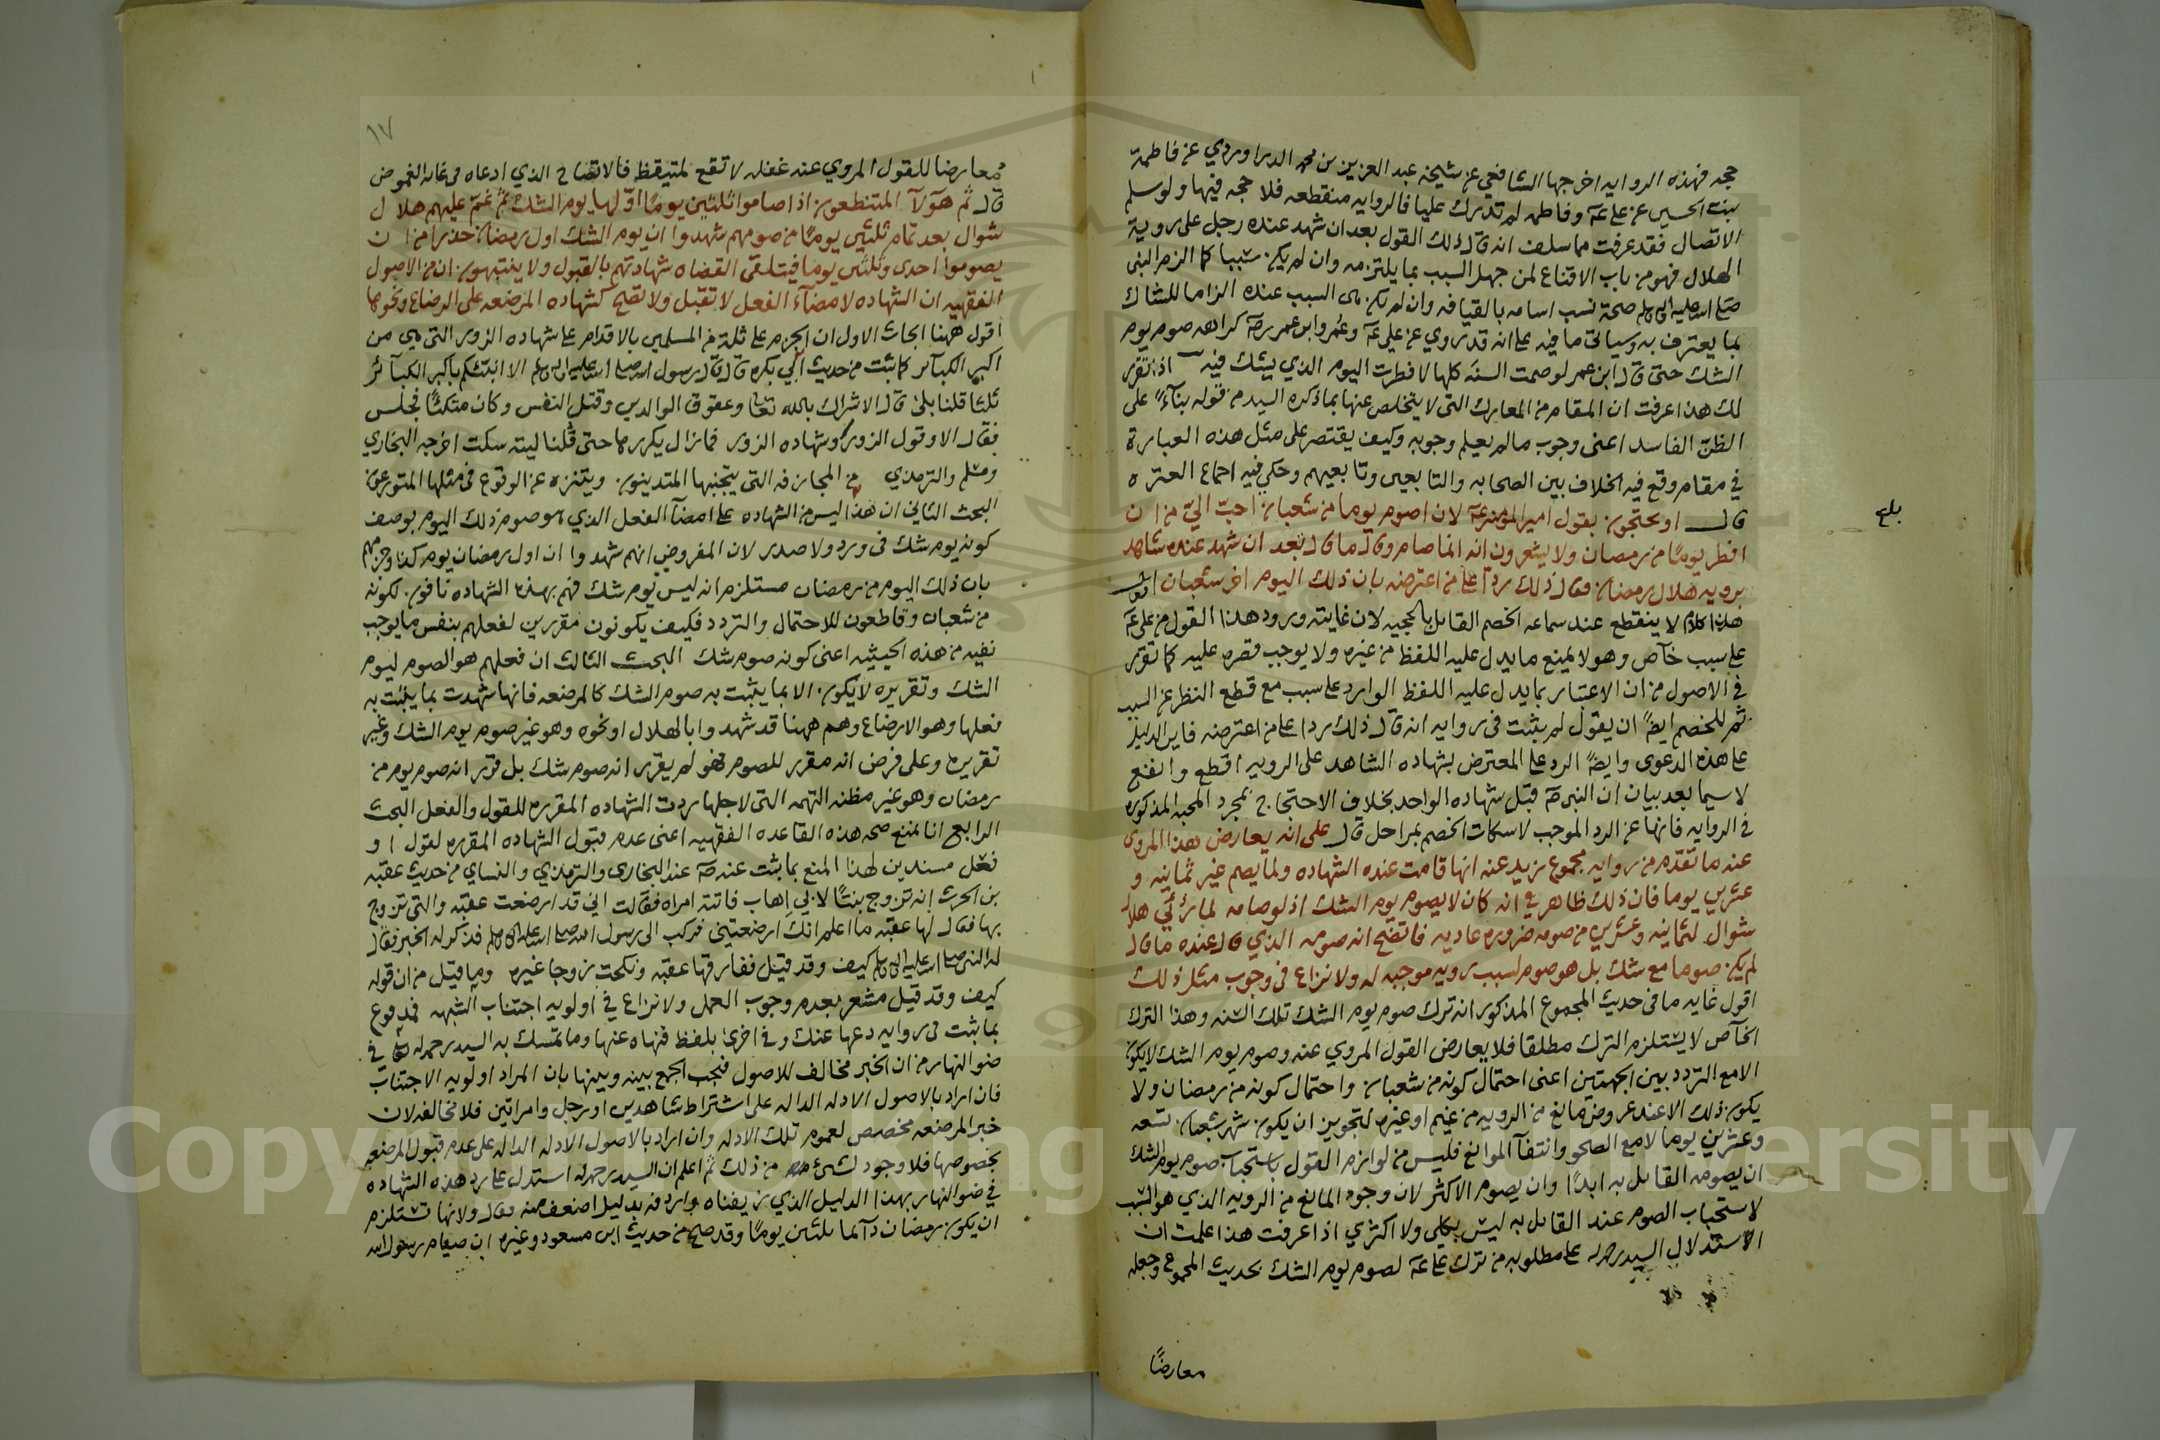 حجه فهذه الروايه اخرجها الشافعي عن شيخه عبد العزيز بن محمد الدراوردي عن فاطمة
بنت الحسين عن علي عم وفاطمه لم تدرك عليا فالروايه منقطعه فلا حجه فيها ولو سلم
الاتصال فقد عرفت مما سلف انه قال ذلك القول بعد ان شهد عنده رجل على روية
الهلال فهو من باب الاقناع لمن جهل السبب بما يلتزمه وان لم يكن سببا كما الزم النبي
صلى الله عليه واله وسلم صحة نسب اسامه بالقيافه وان لم يكن السبب عنده الزاما للشاك
بما يعترف به وسياتي ما فيه على انه قد روي عن علي عم وعمر وابن عمر رضه كراهه صوم يوم
الشك حتى قال ابن عمر لو صمت السنه كلها لافطرت اليوم الذي يشك فيه اذا تقرر
لك هذا عرفت ان المقام من المعارك التي لا يتخلص عنها بما ذكره السيد من قوله بناءً على
الظن الفاسد اعنى وجوب مالم يعلم وجوبه وكيف يقتصر على مثل هذه العبارة
في مقام وقع فيه الخلاف بين الصحابه والتابعين وتابعيهم وحكي فيه اجماع العتره
قال او يحتجون بقول امير المومنين عم لان اصوم يوما من شعبان احب الي من ان
افطر يومًا من رمضان ولا يشعرون انه انما صام وقال ما قال بعد ان شهد عنده شاهد
برويه هلال رمضان فقال ذلك ردًا على من اعترضه بان ذلك اليوم اخر شعبان اقول
هذا كلام لا ينقطع عند سماعه الخصم القايل بالحجيه لان غايته ورود هذا القول من علي عم
على سبب خآص وهو لا يمنع ما يدل عليه اللفظ من غيره ولا يوجب قصره عليه كما تقرر
في الاصول من ان الاعتبار بما يدل عليه اللفظ الوارد على سبب مع قطع النظر عن السبب
ثم للخصم ايضًا ان يقول لم يثبت في روايه انه قال ذلك ردا على من اعترضه فاين الدليل
على هذه الدعوى وايضًا الرد على المعترض بشهاده الشاهد على الرويه اقطع وانفع
لاسيما بعد بيان ان النبي صم قبل شهاده الواحد بخلاف الاحتجاج بمجرد المحبه المذكوره
في الروايه فانها عن الرد الموجب لاسكات الخصم بمراحل قال على انه يعارض هذا المروي
عنه ما تقدم من روايه مجموع زيد عنه انها قامت عنده الشهاده ولما يصم غير ثمانيه و
عشرين يوما فان ذلك ظاهر في انه كان لا يصوم يوم الشك اذ لو صامه لما رئي هلال
شوال لثمانيه وعشرين من صومه ضروره عاديه فاتضح انه صومه الذي قال عنده ما قال
لم يكن صوما مع شك بل هو صوم لسبب رويه موجبه له ولا نزاع في وجوب مثل ذلك
اقول غايه ما في حديث المجموع المذكور انه ترك صوم يوم الشك تلك السنه وهذا الترك
الخآص لا يستلزم الترك مطلقا فلا يعارض القول المروي عنه وصوم يوم الشك لا يكون
الا مع التردد بين الجهتين اعنى احتمال كونه من شعبان واحتمال كونه من رمضان ولا
يكون ذلك الا عند عروض مانع من الرويه من غيم او غيره لتجويز ان يكون شهر شعبان تسعه
وعشرين يوما لا مع الصحو وانتفآ الموانع فليس من لوازم القول باستحباب صوم يوم الشك
ان يصومه القايل به ابدًا وان يصوم الاكثر لان وجود المانع من الرويه الذي هو السبب
لاستحباب الصوم عند القايل به ليس بكلي ولا اكثري اذا عرفت هذا علمت ان
الاستدلال السيد رحمه الله على مطلوبه من ترك علي عم لصوم يوم الشك بحديث المجموع وجعله
معارضًا
بلغ
١٧
معارضا للقول المروي عنه غفله لا تقع لمتيقظ فالاتضاح الذي ادعاه في غايه الغموض
قال ثم هولآ المتنطعون اذا صاموا ثلثين يومًا اولها يوم الشك ثم غم عليهم هلال
شوال بعد تمام ثلثين يومًا من صومهم شهدوا ان يوم الشك اول رمضان حذرا من ان
يصوموا احدى وثلثين يوما فيتلقى القضاه شهادتهم بالقبول ولا ينتبهون ان من الاصول
الفقهيه ان الشهاده لامضآء الفعل لا تقبل ولا تصح كشهاده المرضعه على الرضاع ونحوها
اقول ههنا ابحاث الاول ان الجزم على ثلة من المسلمين بالاقدام على شهاده الزور التي هي من
اكبر الكبآئر كما ثبت من حديث ابي بكره قال قال رسول الله صلى الله عليه واله وسلم الا انبئكم باكبر الكبآئر
ثلثا قلنا بلى قال الاشراك بالله تعا وعقوق الوالدين وقتل النفس وكان متكئًا فجلس
فقال الا وقول الزور وشهاده الزور فما زال يكررها حتى قلنا ليته سكت اخرجه البخاري
ومسلم والترمذي من المجازفه التي يتجنبها المتدينون ويتنزه عن الوقوع في مثلها المتورعون
البحث الثاني ان هذا ليس من الشهاده على امضآ الفعل الذي هو صوم ذلك اليوم بوصف
كونه يوم شك في ورد ولا صدر لان المفروض انهم شهدوا ان اول رمضان يوم كذا وجزمهم
بان ذلك اليوم من رمضان مستلزم انه ليس يوم شك فهم بهذه الشهاده نافون لكونه
من شعبان وقاطعون للاحتمال والتردد فكيف يكونون مقررين لفعلهم بنفس ما يوجب
نفيه من هذه الحيثيه اعنى كونه صوم شك البحث الثالث ان فعلهم هو الصوم ليوم
الشك وتقريره لا يكون الا بما يثبت به صوم الشك كالمرضعه فانها شهدت بما يثبت به
فعلها وهو الارضاع وهم ههنا قد شهدوا بالهلال او نحوه وهو غير صوم يوم الشك وغير
تقريره وعلى فرض انه مقرر للصوم فهو لم يقرر انه صوم شك بل قرر انه صوم يوم من
رمضان وهو غير مظنه التهمه التي لاجلها ردت الشهاده المقرره للقول والفعل البحث
الرابع انا نمنع صحه هذه القاعده الفقهيه اعنى عدم قبول الشهاده المقرره لقول او
فعل مسندين لهذا المنع بما ثبت عنه صم عند البخاري والترمذي والنساي من حديث عقبه
بن الحرث انه تزوج بنتًا لابي اهاب فاتته امراه فقالت اني قد ارضعت عقبه والتي تزوج
بها فقال لها عقبه ما اعلم انك ارضعتيني فركب الى رسول الله صلى الله عليه واله وسلم فذكر له الخبر فقال
له النبي صلى الله عليه واله وسلم كيف وقد قيل ففارقها عقبه ونكحت زوجا غيره وما قيل من ان قوله
كيف وقد قيل مشعر بعدم وجوب العمل ولا نزاع في اولويه اجتناب الشبهه فمدفوع
بما ثبت في روايه دعها عنك وفي اخرى بلفظ فنهاه عنها وما تمسك به السيد رحمه الله تعا في
ضوء النهار من ان الخبر مخالف للاصول فيجب الجمع بينه وبينها بان المراد اولويه الاجتناب
فان اراد بالاصول الادله الداله على اشتراط شاهدين او رجل وامراتين فلا مخالفه لان
خبر المرضعه مخصص لعموم تلك الادله وان اراد بالاصول الادله الداله على عدم قبول المرضعه
بخصوصها فلا وجود لشئ من ذلك ثم اعلم ان السيد رحمه الله استدل على رد هذه الشهاده
في ضوء النهار بهذا الدليل الذي زيفناه واردفه بدليل اضعف منه فقال ولانها تستلزم
ان يكون رمضان دآئما ثلثين يومًا وقد صح من حديث ابن مسعود وغيره ان صيام رسول الله